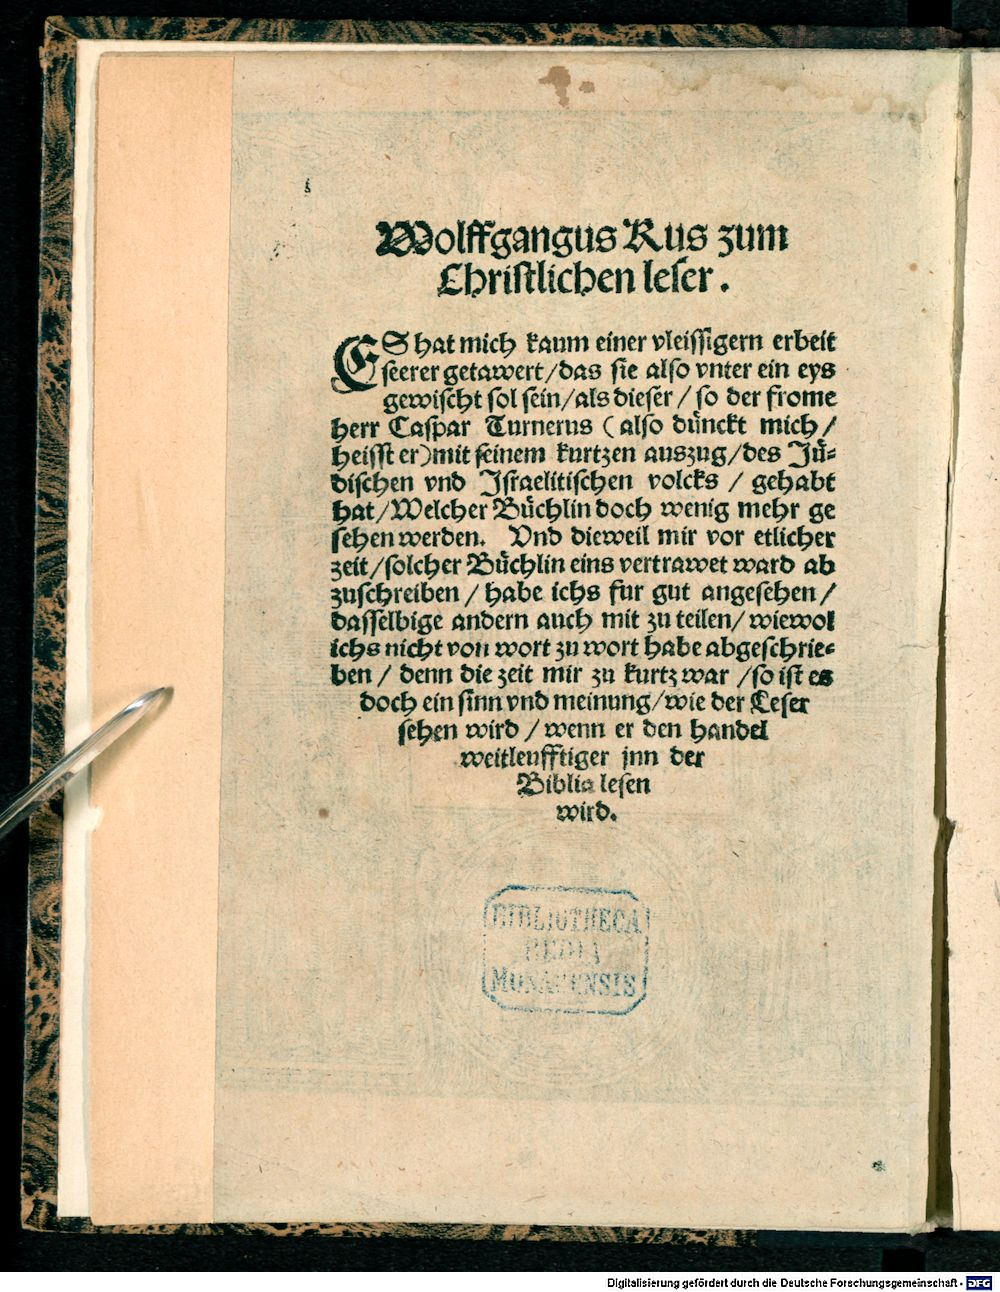 Wolffgangus Rus zum
Christlichen leser.
ES hat mich kaum einer vleissigern erbeit
seerer getawert/das sie also vnter ein eys
gewischt sol sein/als dieser/ so der frome
herr Caspar Turnerus (also dünckt mich/
heisst er) mit seinem kurtzen auszug/des Jü-
dischen vnd Israelitischen volcks / gehabt
hat/Welcher Büchlin doch wenig mehr ge
sehen werden. Vnd dieweil mir vor etlicher
zeit/solcher Büchlin eins vertrawet ward ab
zuschreiben / habe ichs fur gut angesehen/
dasselbige andern auch mit zu teilen/ wiewol
ichs nicht von wort zu wort habe abgeschrie-
ben / denn die zeit mir zu kurtz war /so ist es
doch ein sinn vnd meinung/wie der Leser
sehen wird / wenn er den handel
weitleufftiger jnn der
Biblia lesen
wird.
BIBLIOTHECA
REGIA
MONACENSIS
Digitalisierung gefördert durch die Deutsche Forschungsgemeinschaft - DFG